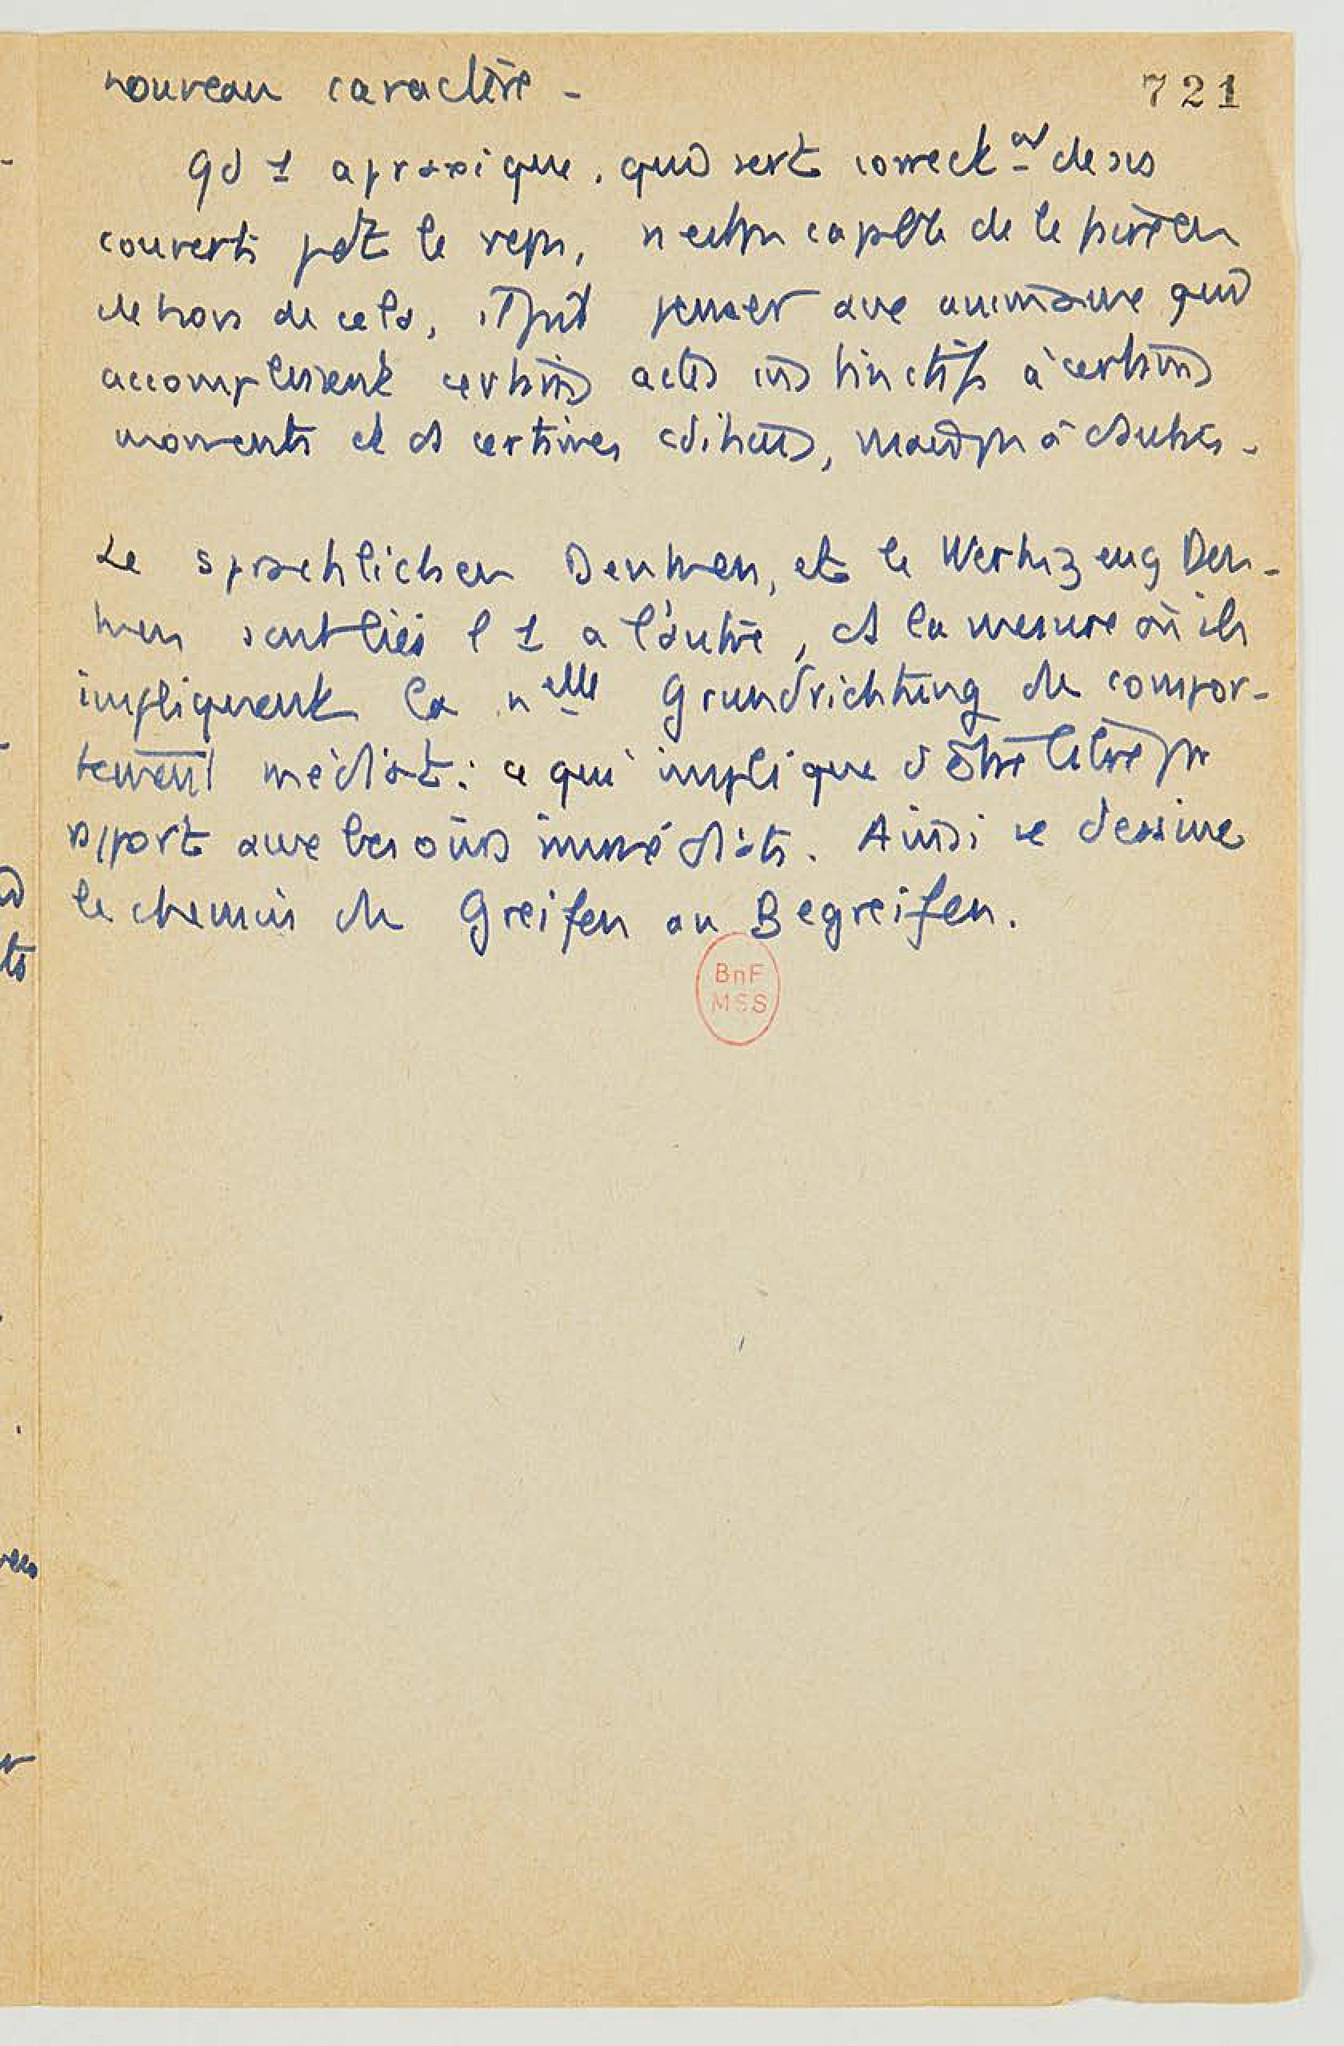 nouveau caractère -
721
Qd 1 apraxique, qui sert correctt de ses
couverts pdt le repas, n'est pas capable de le faire en
dehors de cela, il faut penser aux animaux qui
accomplissent certains actes instinctifs à certains
moments et ds certaines conditions, mais pas à d'autres.
Le sprachlichen Denken, et le Werkzeug Den-
ken sont liés l'1 à l'autre, ds la mesure où ils
impliquent la nelle Grundrichtung du compor-
tement médiat : ce qui implique d'être libre pr
rapport aux besoins immédiats. Ainsi se dessine
le chemin du Greifen au Begreifen.
BnF
MSS